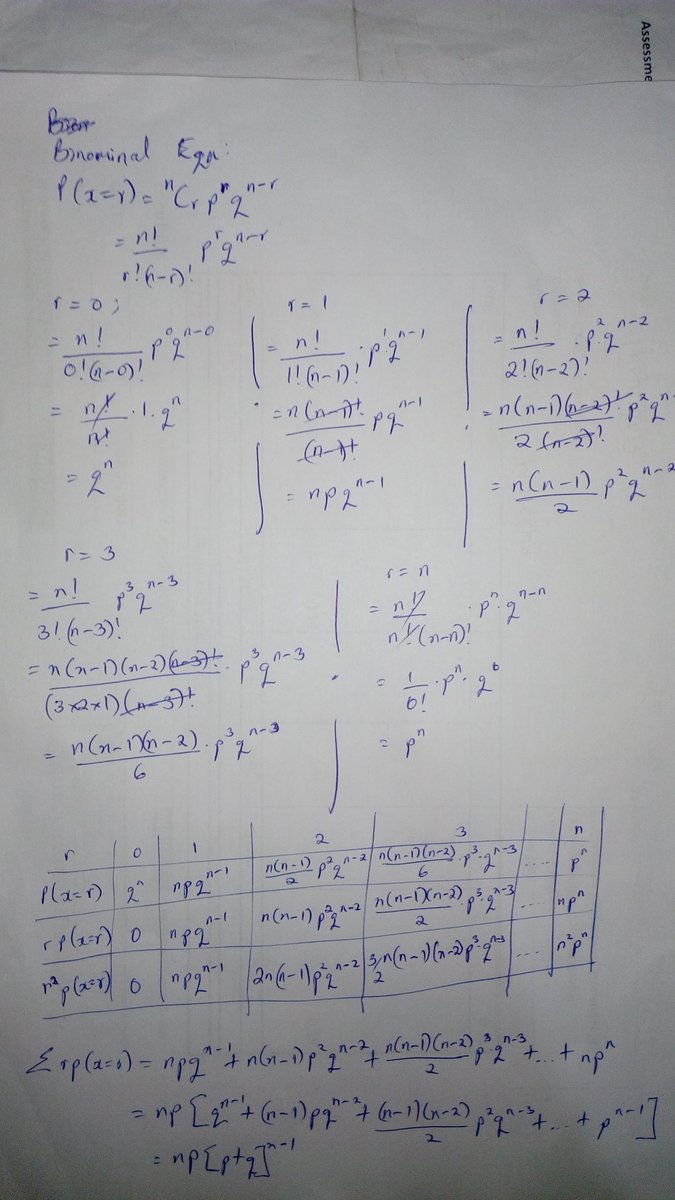 Assessme
Binominal Eqn:
P(x=r) = ⁿCᵣ pʳ qⁿ⁻ʳ
= n!/(r!(n-r)!) pʳqⁿ⁻ʳ
r = 0 ;
= n!/(0!(n-0)!) p⁰qⁿ⁻⁰
= n!/n! · 1 · qⁿ
= qⁿ
r = 1
= n!/(1!(n-1)!) · p¹qⁿ⁻¹
= n(n-1)!/(n-1)! pqⁿ⁻¹
= npqⁿ⁻¹
r = 2
= n!/(2!(n-2)!) · p²·qⁿ⁻²
= n(n-1)(n-2)!/(2(n-2)!) · p²qⁿ⁻
= n(n-1)/2 p²qⁿ⁻²
r = 3
= n!/(3!(n-3)!) p³qⁿ⁻³
= n(n-1)(n-2)(n-3)!/((3×2×1)(n-3)!) · p³qⁿ⁻³
= n(n-1)(n-2)/6 · p³qⁿ⁻³
r = n
= n!/(n!(n-n)!) · pⁿ · qⁿ⁻ⁿ
= 1/0! · pⁿ · q⁰
= pⁿ
r 0 1 2 3 n
P(x=r) qⁿ npqⁿ⁻¹ n(n-1)/2 p²qⁿ⁻² n(n-1)(n-2)/6 · p³·qⁿ⁻³ .... pⁿ
rp(x=r) 0 npqⁿ⁻¹ n(n-1)p²qⁿ⁻² n(n-1)(n-2)/2 · p³·qⁿ⁻³ ... npⁿ
r²p(x=r) 0 npqⁿ⁻¹ 2n(n-1)p²qⁿ⁻² 3/2 n(n-1)(n-2)p³qⁿ⁻³ .... n²pⁿ
Σ rp(x=r) = npqⁿ⁻¹ + n(n-1)p²qⁿ⁻² + n(n-1)(n-2)/2 p³qⁿ⁻³ + ... + npⁿ
= np[qⁿ⁻¹ + (n-1)pqⁿ⁻² + (n-1)(n-2)/2 p²qⁿ⁻³ + ... + pⁿ⁻¹]
= np[p+q]ⁿ⁻¹